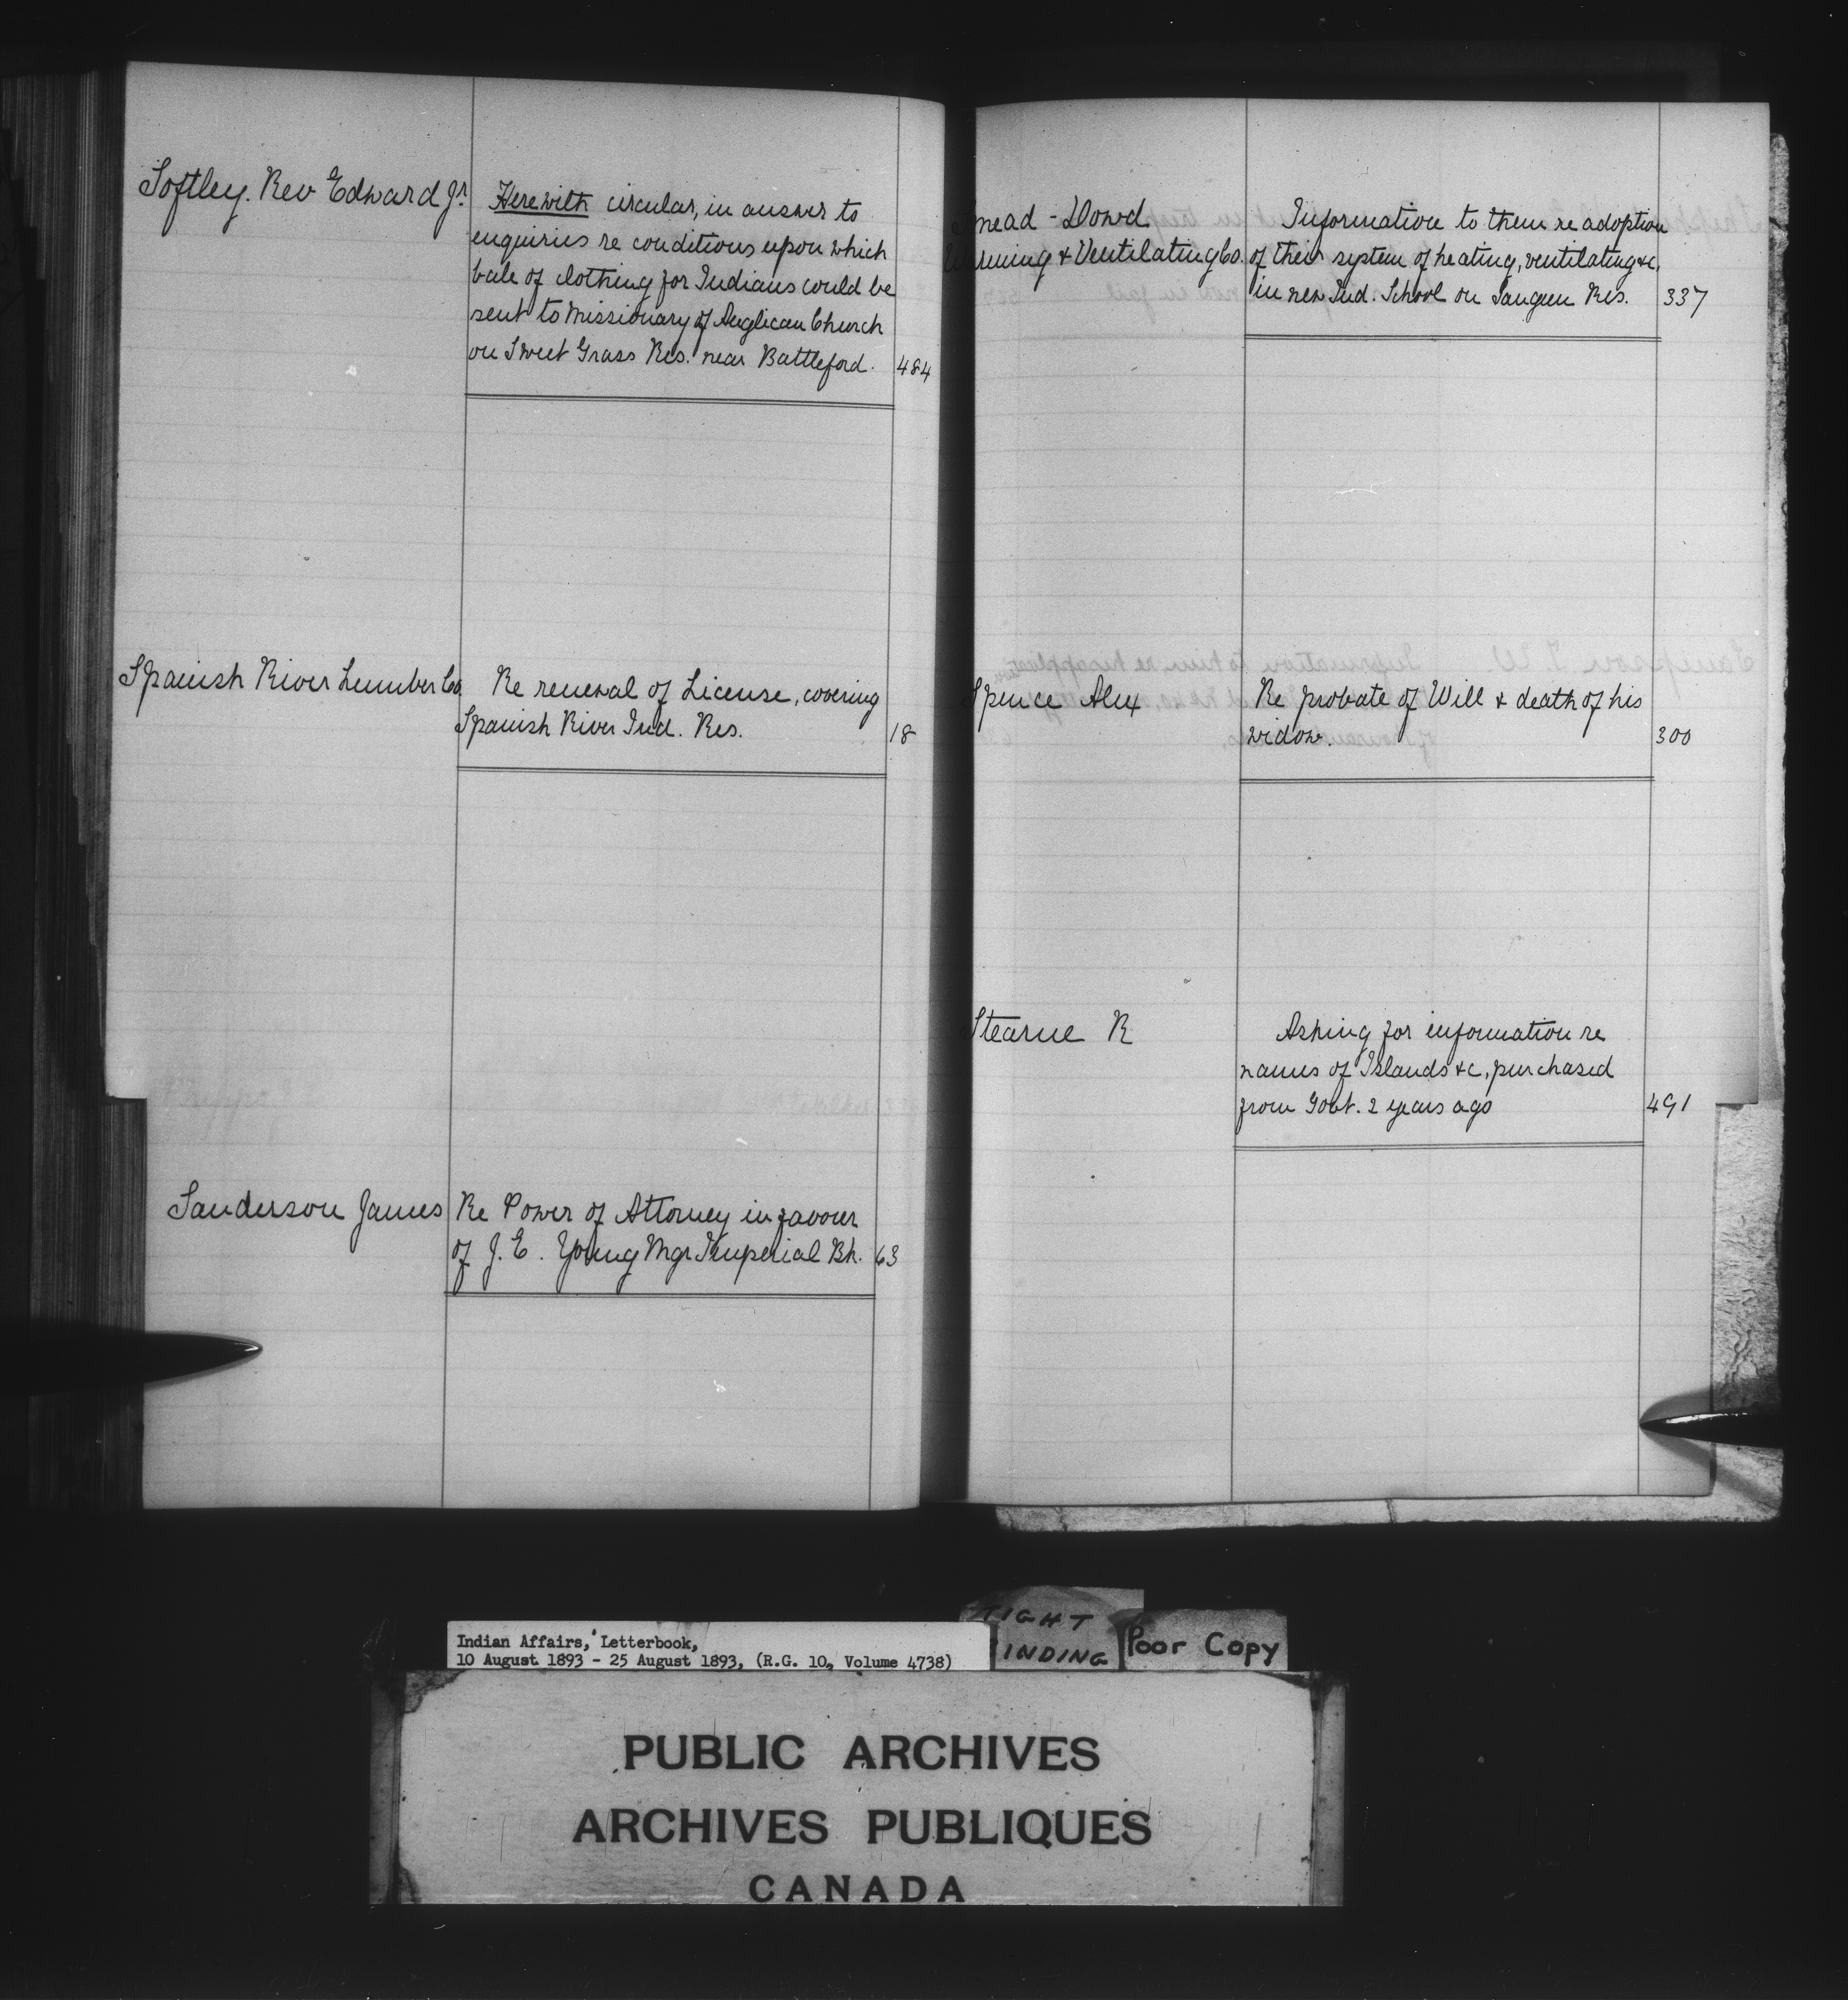 Softley. Rev Edward Jr.
Herewith circular, in answer to
enquiries re conditions upon which
bale of clothing for Indians could be
sent to Missionary of Anglican Church
on Sweet Grass Res. near Battleford. 484
Spanish River Lumber Co.
Re renewal of License, covering
Spanish River Ind. Res. 18
Sanderson James
Re Power of Attorney in favour
of J. E. Young Mgr Imperial Bk. 63
mead - Dowd
Warming & Ventilating Co.
Information to them re adoption
of their system of heating, ventilating &c,
in new Ind. School on Saugeen Res. 337
Spence Alex
Re probate of Will & death of his
widow. 300
Stearne R
Asking for information re
names of Islands &c, purchased
from Govt. 2 years ago 491
TIGHT
INDING
Poor Copy
Indian Affairs, Letterbook,
10 August 1893 - 25 August 1893, (R.G. 10, Volume 4738)
PUBLIC ARCHIVES
ARCHIVES PUBLIQUES
CANADA